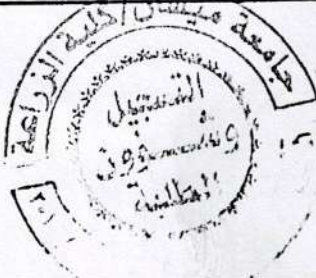 جامعة ميسان / كلية الزراعة
التسجيل
وشؤون
الطلبة